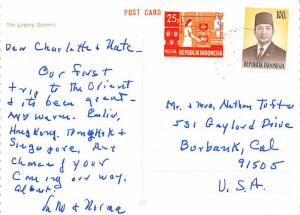 The Legong Dancers
POST CARD
25
PELITA
REPUBLIK INDONESIA
100
REPUBLIK INDONESIA
Dear Charlotte & Nate -
Our first
trip to the Orient
& it's been great -
warm.
Hongkong, Bangkok &
Singapore. Any
chance of your
coming our way.
& Norma
Mr. & Mrs. Nathan Tufts
531 Gaylord Drive
Burbank, Cal
91505
U.S.A.